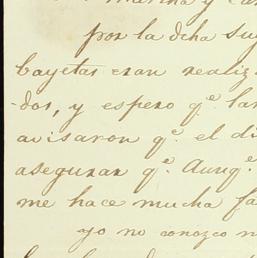 por la dcha su
bayetas eran realiz
dos, y espero q.e la
avisaron q.e el di
asegurar q.e Aunq.e
me hace mucha fa
yo no conozco